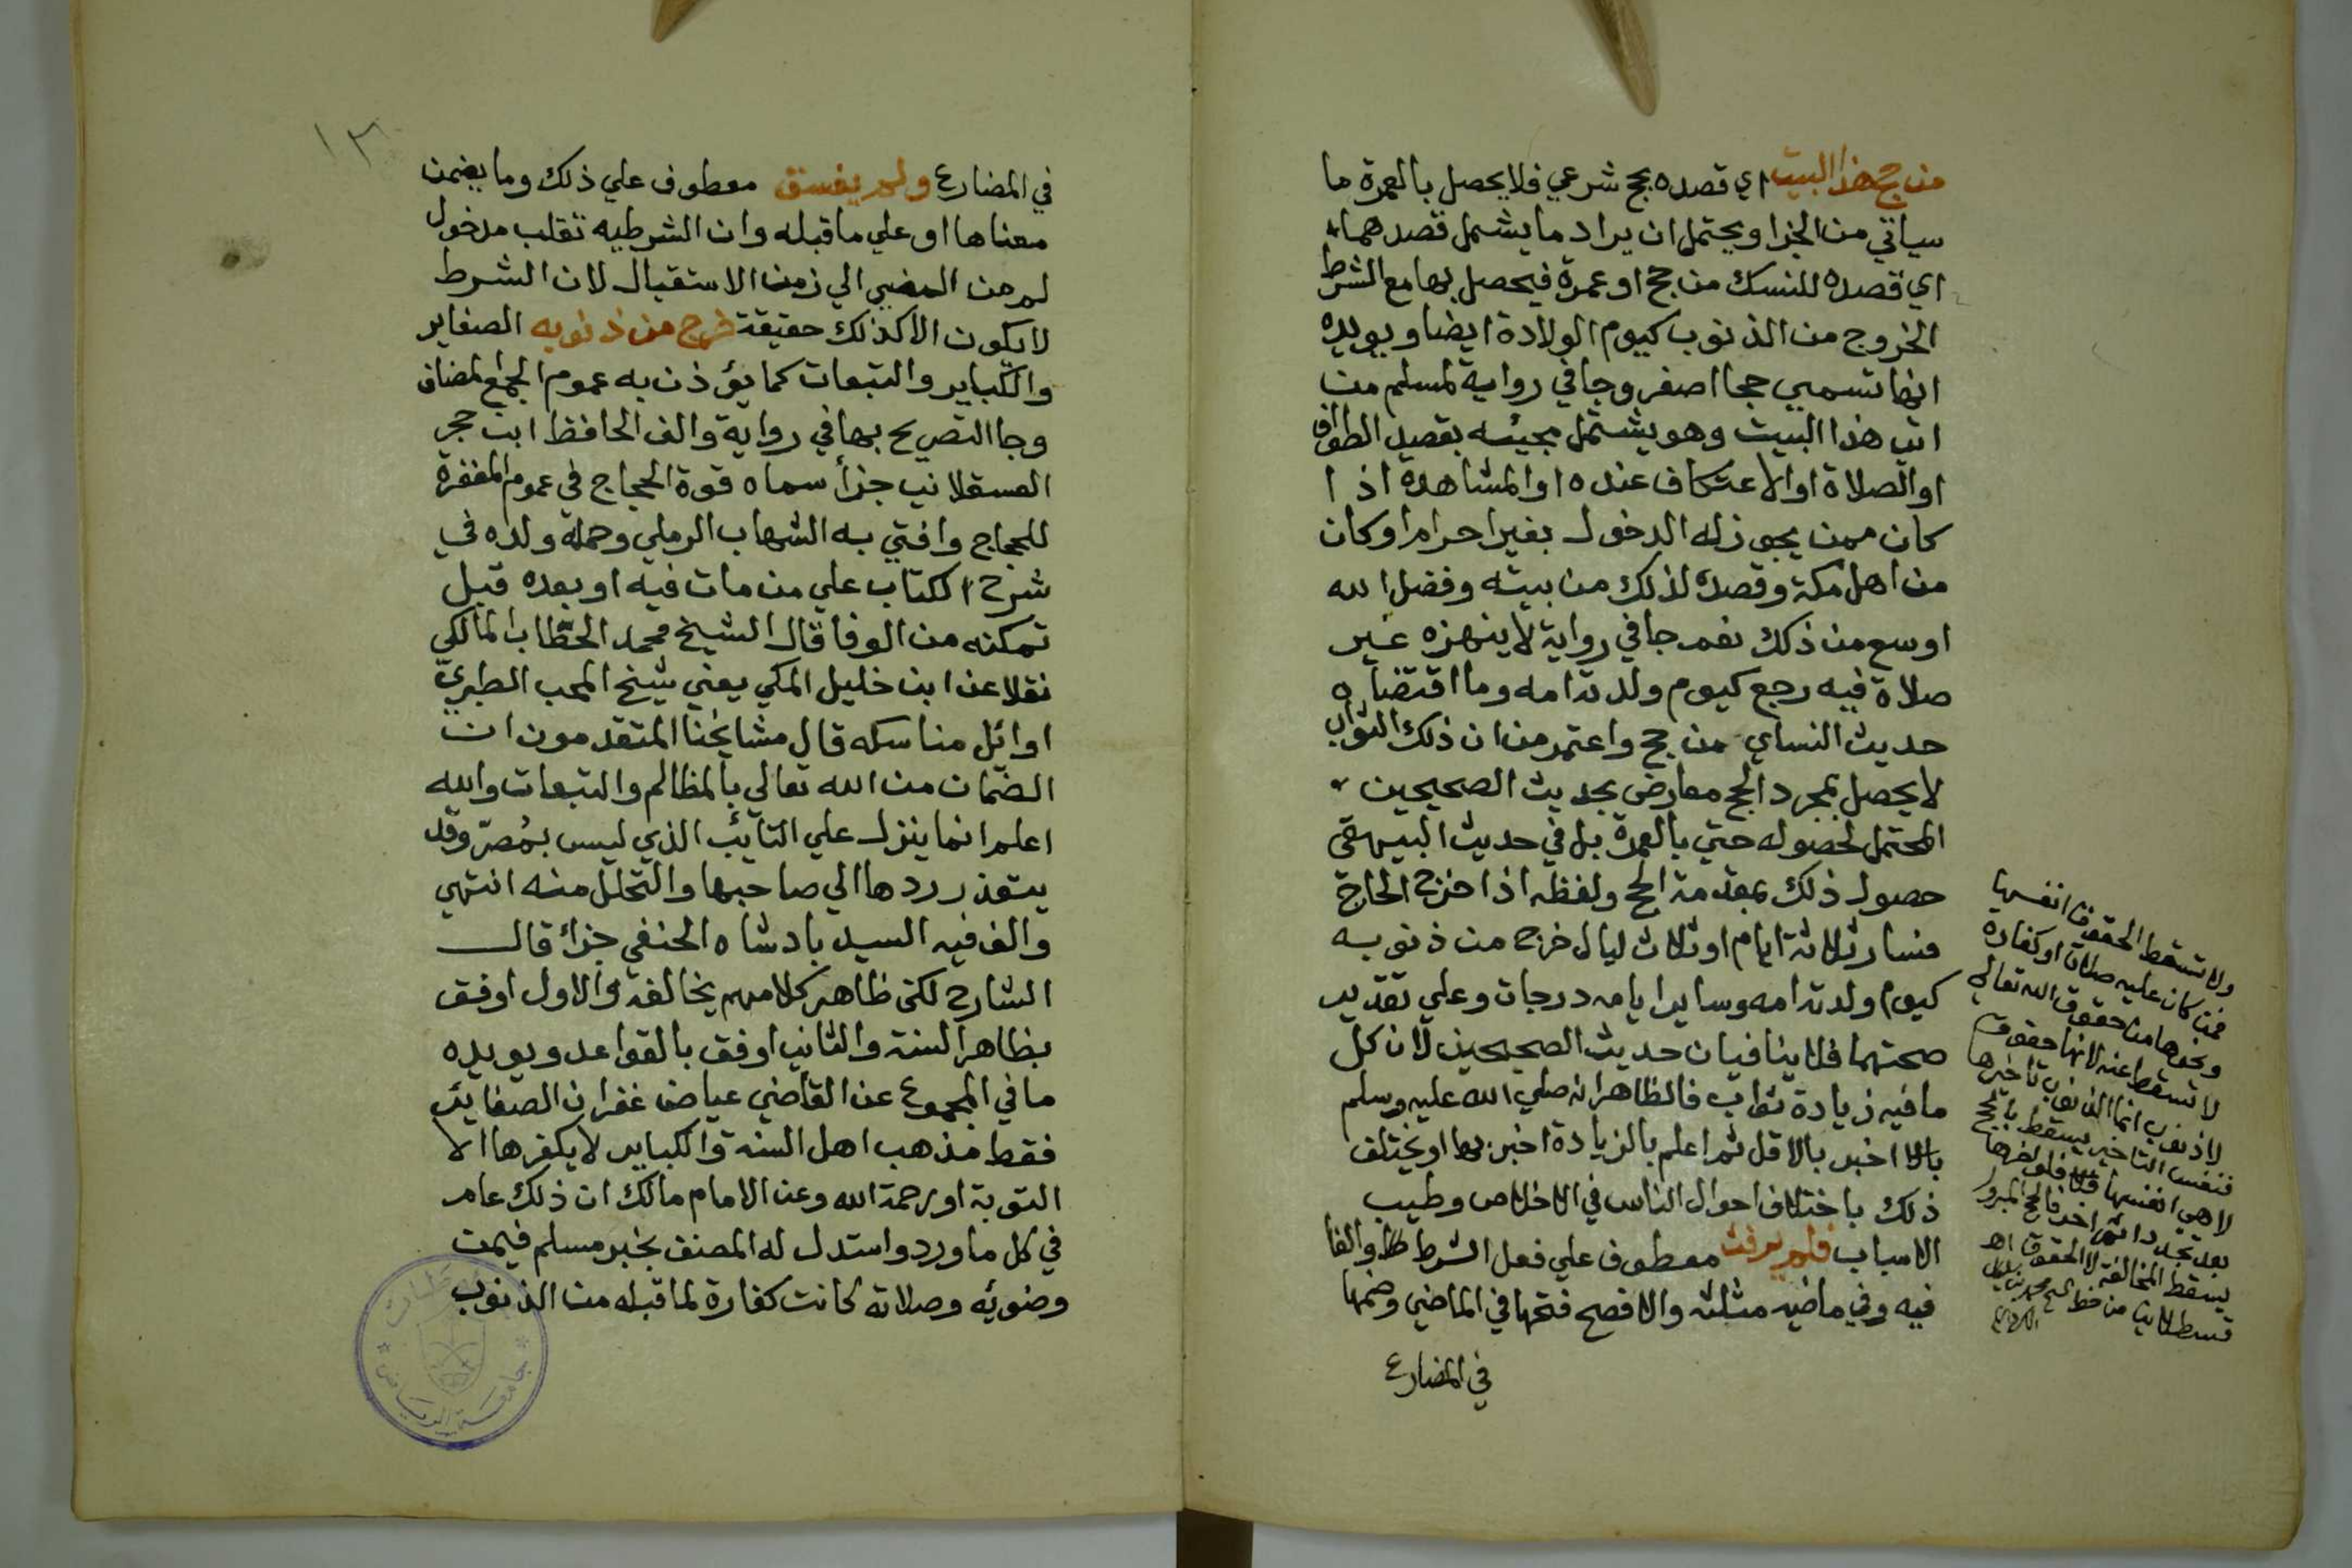 من حج هذا البيت اي قصده بحج شرعي فلا يحصل بالعمرة ما
سياتي من الجزا ويحتمل ان يراد ما يشمل قصدهما
اي قصده للنسك من حج او عمرة فيحصل بها مع الشرط
الخروج من الذنوب كيوم الولادة ايضا ويويده
انها تسمي حجا اصغر وجا في رواية لمسلم من
اتي هذا البيت وهو يشتمل مجيئه بقصد الطواف
او الصلاة او الاعتكاف عنده او المشاهدة اذا
كان ممن يجوز له الدخول بغير احرام او كان
من اهل مكة وقصده لذلك من بيته وفضل الله
اوسع من ذلك نعم جا في رواية لا ينهزه غير
صلاة فيه رجع كيوم ولدته امه وما اقتضاه
حديث النساي من حج واعتمر من ان ذلك الثواب
لا يحصل بمجرد الحج معارض بحديث الصحيحين
المحتمل لحصوله حتي بالعمرة بل في حديث البيهقي
حصول ذلك بمقدمة الحج ولفظه اذا خرج الحاج
فسار ثلاثة ايام او ثلاث ليال خرج من ذنوبه
كيوم ولدته امه وساير ايامه درجات وعلي تقدير
صحتهما فلا ينافيان حديث الصحيحين لان كل
ما فيه زيادة ثواب فالظاهر انه صلي الله عليه وسلم
اخبر بالاقل ثم اعلم بالزيادة اخبر بها او يختلف
ذلك باختلاف احوال الناس في الاخلاص وطيب
الاسباب فلم يرفث معطوف علي فعل الشرط والفا
فيه وفي ماضيه مثلثة والافصح فتحها في الماضي وضمها
في المضارع
ولا تسقط الحقوق انفسها
فمن كان عليه صلاة او كفارة
ونحوها من حقوق الله تعالي
لا تسقط عنه لانها حقوق
لا ذنوب انما الذنوب تاخيرها
فنفس التاخير يسقط بالحج
لا هي انفسها فلو اخرها
بعد تجدد اثم اخر فالحج المبرور
يسقط المخالفة لا الحقوق اه
قسطلاني من خط
١٣
في المضارع ولم يفسق معطوف علي ذلك وما بضمن
معناها او علي ما قبله وان الشرطيه تقلب مدخول
لم من المضي الي زمن الاستقبال لان الشرط
لا يكون الا كذلك حقيقة خرج من ذنوبه الصغاير
والكباير والتبعات كما يؤذن به عموم الجمع المضاف
وجا التصريح بها في رواية والف الحافظ ابن حجر
العسقلاني جزأ سماه قوة الحجاج في عموم المغفرة
للحجاج وافتي به الشهاب الرملي وحمله ولده في
شرح الكتاب علي من مات فيه او بعده قبل
تمكنه من الوفا قال الشيخ محمد الحطاب المالكي
نقلا عن ابن خليل المكي يعني شيخ المحب الطبري
اوائل مناسكه قال مشايخنا المتقدمون ان
الضمان من الله تعالي بالمظالم والتبعات والله
اعلم انما ينزل علي التائب الذي ليس بمُصرّ وقد
يتعذر ردها الي صاحبها والتحلل منه انتهي
والف فيه السيد بادشاه الحنفي جزأ قال
الشارح لكن ظاهر كلامهم يخالفه والاول اوفق
بظاهر السنة والثاني اوفق بالقواعد ويويده
ما في المجموع عن القاضي عياض غفران الصغاير
فقط مذهب اهل السنة والكباير لا يكفرها الا
التوبة او رحمة الله وعن الامام مالك ان ذلك عام
في كل ما ورد واستدل له المصنف بخبر مسلم فيمن
وضوئه وصلاته كانت كفارة لما قبله من الذنوب
جامعة الرياض